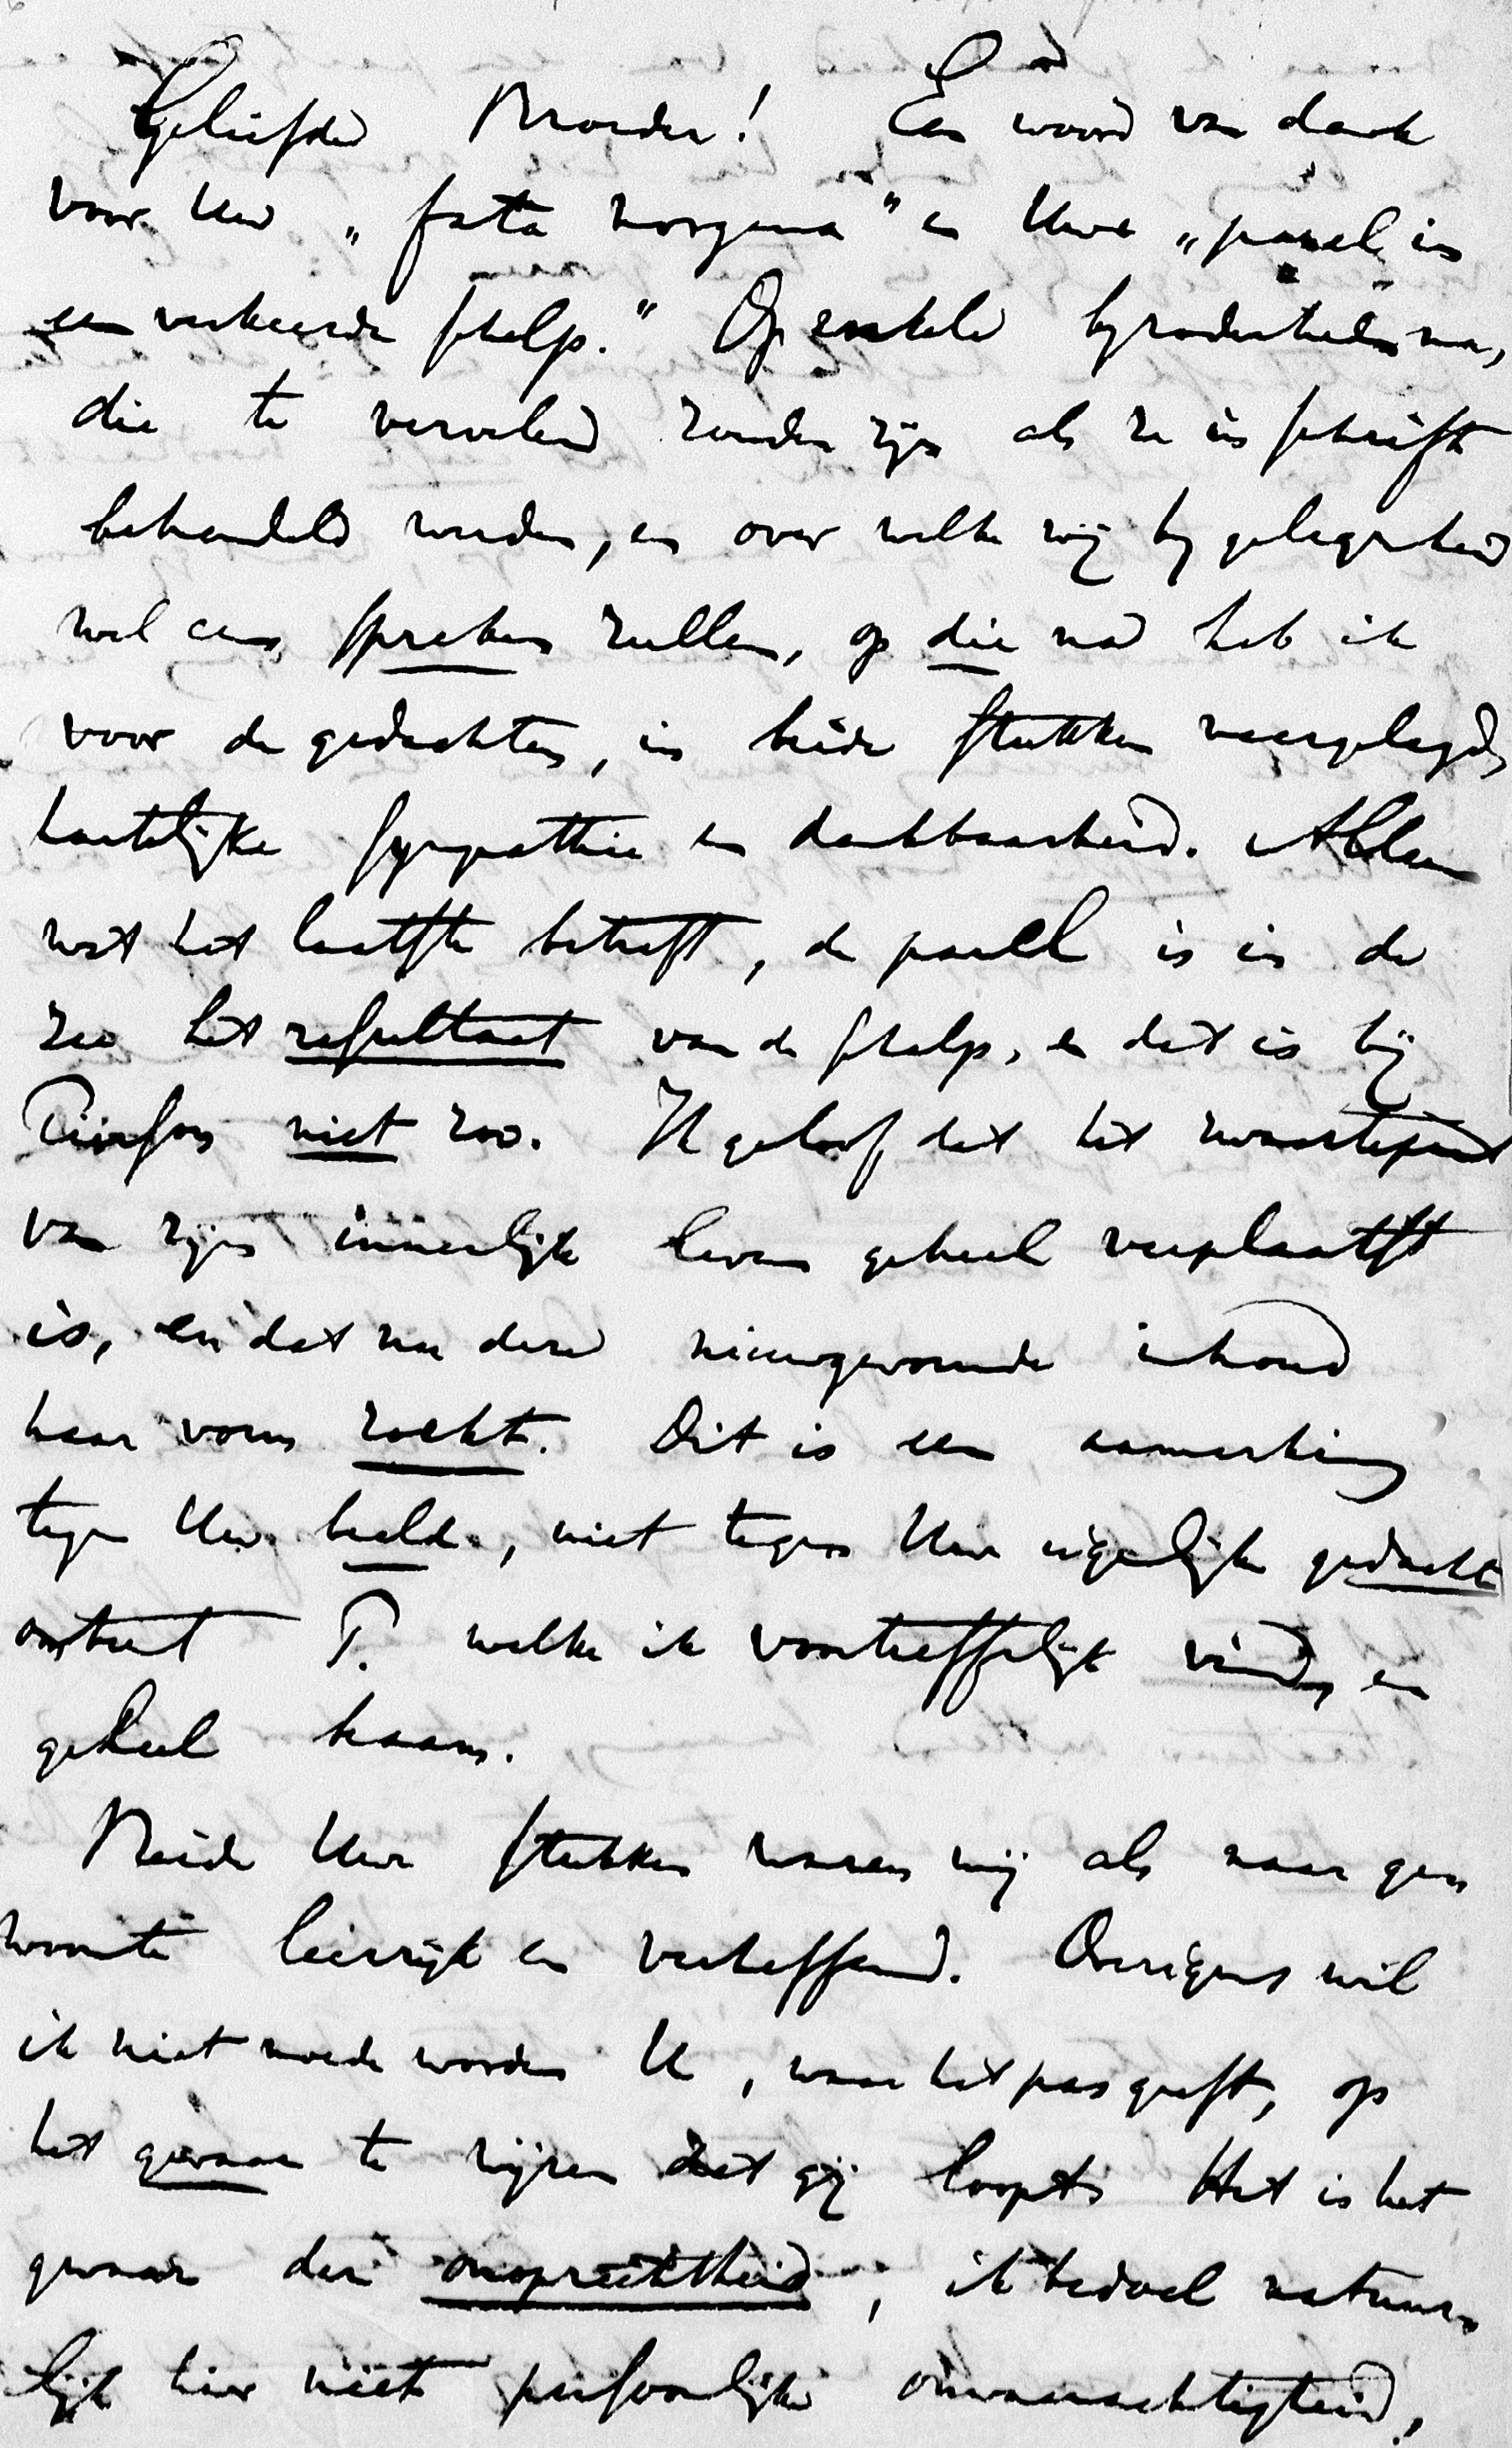 Geliefde Broeder! Een woord van dank
voor Uw „fata morgana" en Uwe „parel in
een verkeerde schelp." Op enkele byzonderheden na,
die te vervelend zouden zijn als ze in schrift
behandeld werden, en over welke wij by gelegenheid
wel eens spreken zullen, op die na heb ik
voor de gedachten, in beide stukken neergelegd,
hartelijke sympathie en dankbaarheid. Alleen
wat het laatste betreft, de parel is in de
zee het resultaat van de schelp, en dat is bij
Pierson niet zoo. Ik geloof dat het zwaartepunt
van zijn innerlijk leven geheel verplaatst
is, en dat nu deze nieuwgewonnen inhoud
haar vorm zoekt. Dit is een aanmerking
tegen Uw beeld, niet tegen Uwe eigenlijke gedachte
omtrent P. welke ik voortreffelijk vind, en
geheel beaam.
Beide Uwe stukken waren mij als naar ge=
woonte leerrijk en verheffend. Overigens wil
ik niet moede worden U, waar het pas geeft, op
het gevaar te wijzen dat gij loopt. Het is het
gevaar der onoprechtheid; ik bedoel natuur=
lijk hier niet persoonlijke onwaarachtigheid,